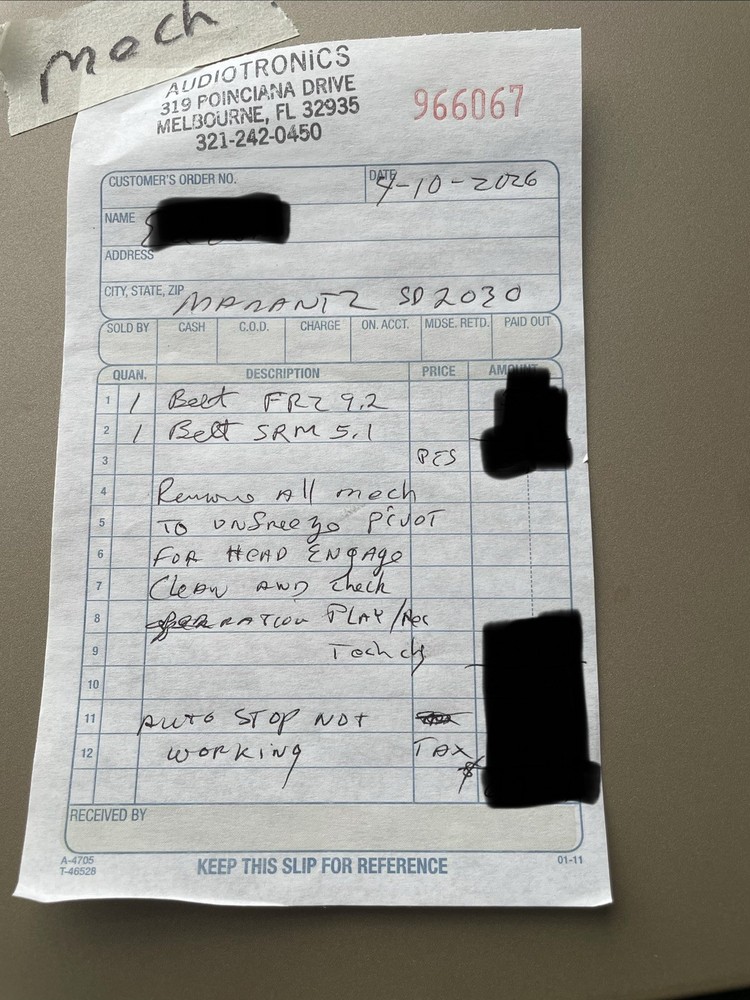 moch
AUDIOTRONICS
319 POINCIANA DRIVE
MELBOURNE, FL 32935
321-242-0450
966067
CUSTOMER'S ORDER NO.
DATE 4-10-2026
NAME
ADDRESS
CITY, STATE, ZIP MARANTZ SD2030
SOLD BY CASH C.O.D. CHARGE ON. ACCT. MDSE. RETD. PAID OUT
QUAN. DESCRIPTION PRICE
1 1 Belt FRZ 9.2
2 1 Belt SRM 5.1
3
4 Remove All mech
5 TO UNFreeze PIVOT
6 FOR HEAD ENgAge
7 CLeaN AND check
8 OPERATION PLAY/Rec
9 Tech
10
11 AUTO STOP NOT
12 WORKING TAX
$
RECEIVED BY
A-4705
T-46528
KEEP THIS SLIP FOR REFERENCE
01-11